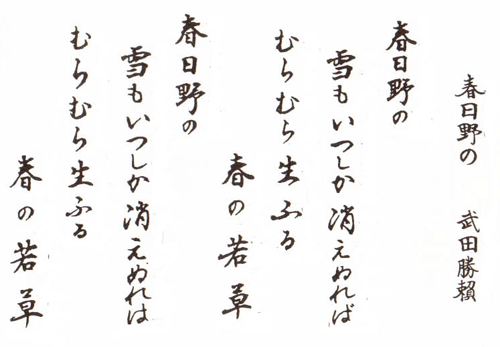 春日野の　武田勝頼
春日野の
雪もいつしか消えぬれば
むらむら生ふる
春の若草
春日野の
雪もいつしか消えぬれは
むらむら生ふる
春の若草